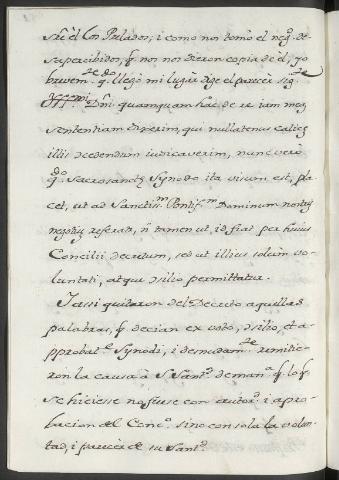 sire el Con Prelados; i como nos tomo el neg.º de-
sapercibidos, q̃. nos nos dieron copia de el, yo
brevem.te qdo. llegó mi lugar dige el parecer sig.te
Dñi quamquam hac de re iam meã
sententiam dixerim, qui nullatenus calicẽ
illis concedendum iudicaverim, nunc verò
qº. Sacrosanctę Synodo ita visum est, pla
cet, ut ad Sanctiss.m Pontif.m Dominum nostrũ
negotiũ referat, si tamen ut, id fiat per huius
Concilii decretum, sed ut illius solum vo-
luntati, atque consilio permittatur.
I assi quitaron del Decreto aquellas
palabras, q̃. decian ex voto, consilio, et a-
pprobat.e Synodi, i desnudam.te remitie-
ron la causa à S. Sant.d de man.a q̃. lo q̃.
se hiciesse no fuese con autor.d i apro-
bacion del Conc.º sino con sola la volun-
tad, i parecer de su Sant.d